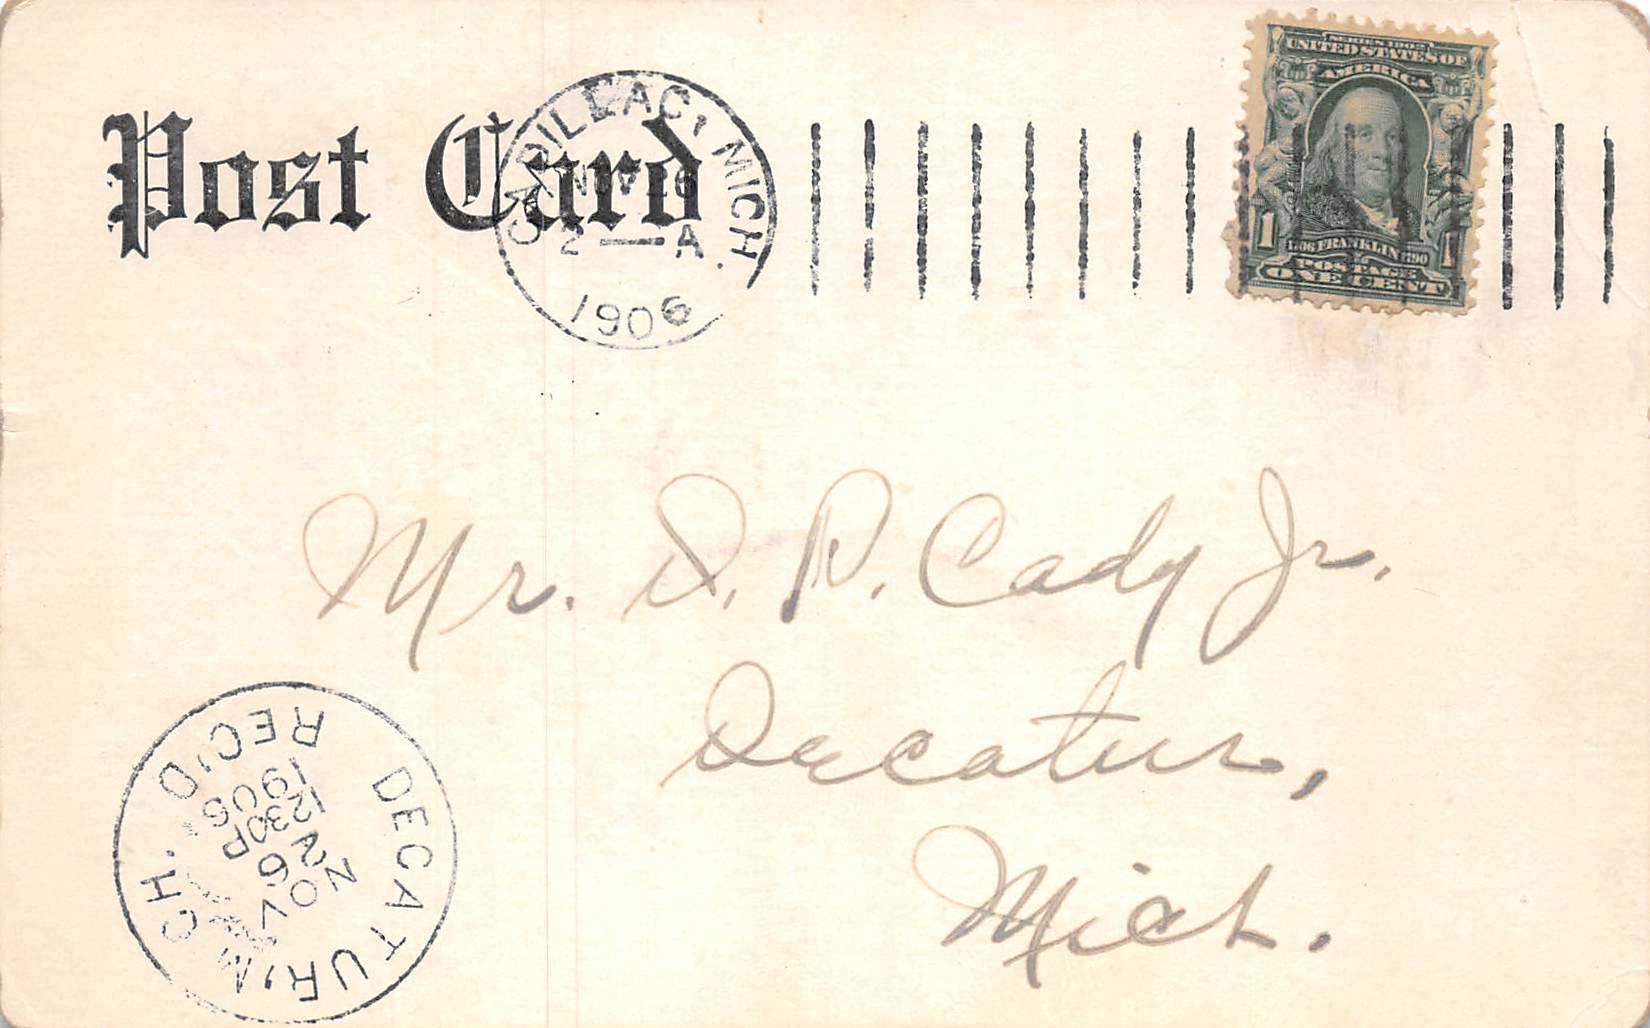 Post Card
CADILLAC, MICH.
2 — A
1906
SERIES 1902
UNITED STATES OF
AMERICA
1706 FRANKLIN 1790
POSTAGE
1 ONE CENT 1
Mr. S. P. Cady Jr.
Decatur,
Mich.
DECATUR, MICH.
REC'D
NOV
26
1230P
1906